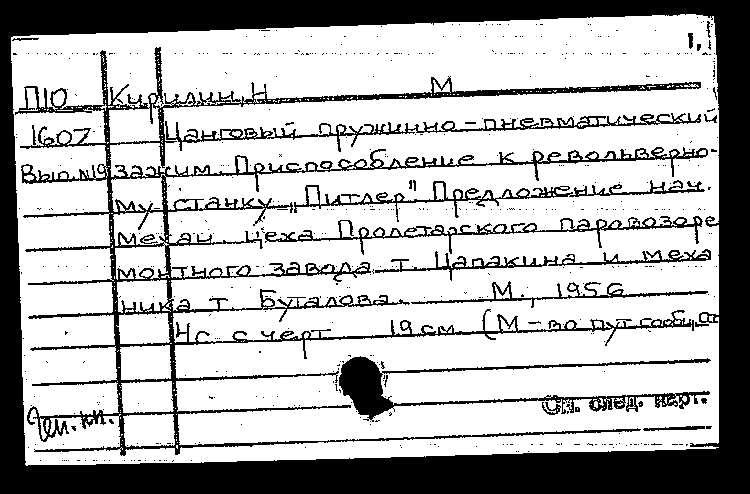 1.
П10 Кирилин, Н М
1607 Цанговый пружинно-пневматический
Вып. №19 зажим. Приспособление к револьверно-
му станку „Питлер". Предложение нач.
механ цеха Пролетарского паровозоре
монтного завода т. Цапакина и меха
ника т. Буталова. М., 1956
4с. с черт 19 см. (М-во пут сообщ.
Ген. кн. См. след. карт.